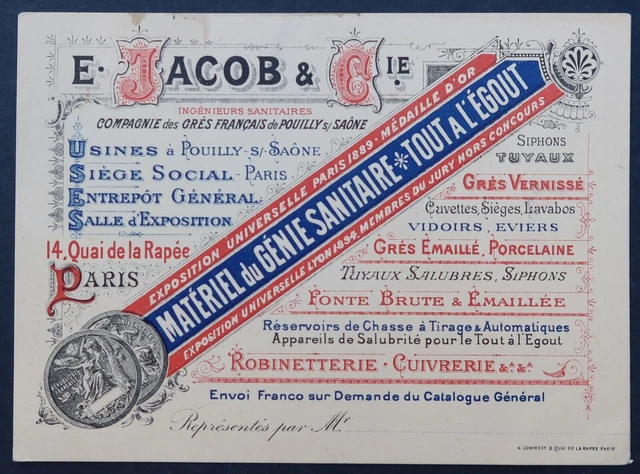 E. JACOB & CIE.
INGÉNIEURS SANITAIRES
COMPAGNIE des GRÈS FRANÇAIS de POUILLY s/ SAÔNE
USINES à POUILLY-S/-SAÔNE
SIÈGE SOCIAL-PARIS
ENTREPÔT GÉNÉRAL
SALLE d'EXPOSITION
14, Quai de la Rapée
PARIS
EXPOSITION UNIVERSELLE PARIS 1889 - MÉDAILLE D'OR
MATÉRIEL du GÉNIE SANITAIRE * TOUT A L'ÉGOUT
EXPOSITION UNIVERSELLE LYON 1894. MEMBRES DU JURY HORS CONCOURS
SIPHONS
TUYAUX
GRÈS VERNISSÉ
Cuvettes, Sièges, Lavabos
VIDOIRS, EVIERS
GRÈS EMAILLÉ, PORCELAINE
TUYAUX SALUBRES, SIPHONS
FONTE BRUTE & EMAILLÉE
Réservoirs de Chasse à Tirage & Automatiques
Appareils de Salubrité pour le Tout à l'Egout
ROBINETTERIE - CUIVRERIE &a. &a.
Envoi Franco sur Demande du Catalogue Général
Représentés par Mr